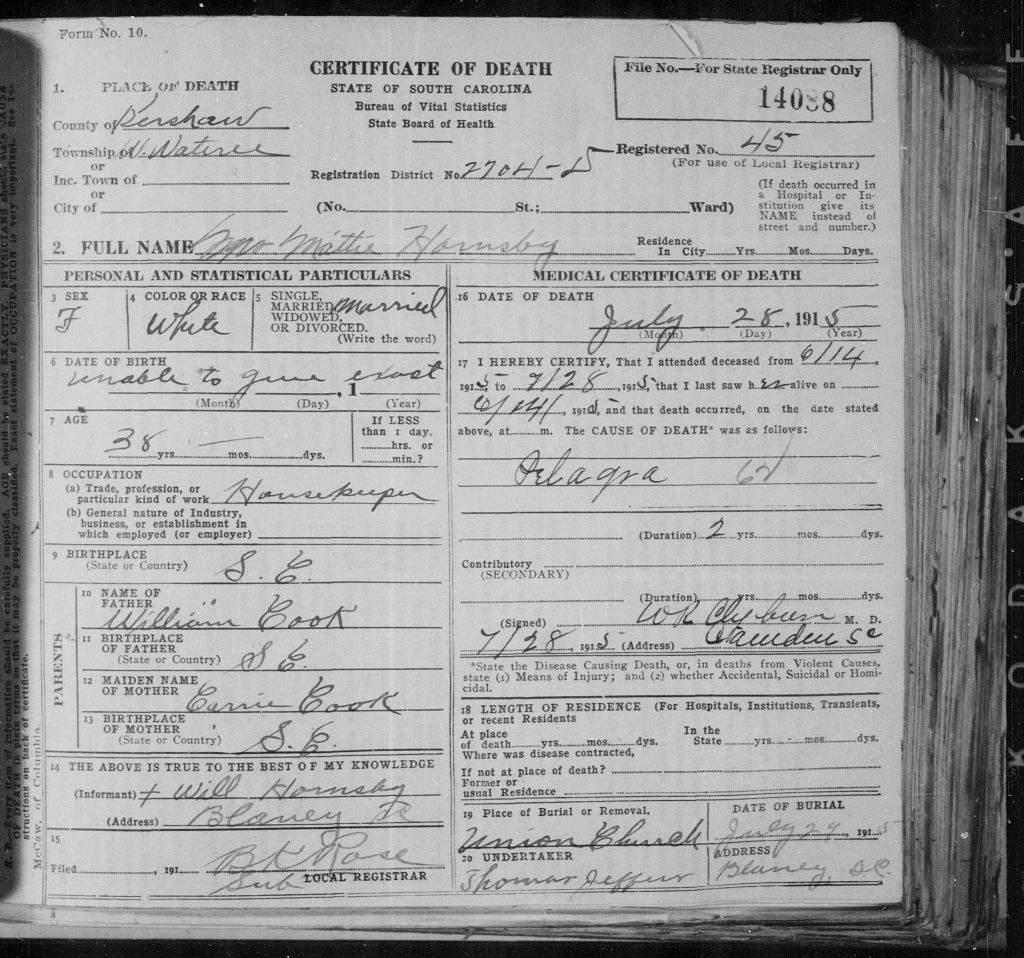 Form No. 10.
CERTIFICATE OF DEATH
STATE OF SOUTH CAROLINA
Bureau of Vital Statistics
State Board of Health
File No.—For State Registrar Only
14088
1. PLACE OF DEATH
County of Kershaw
Township of W. Wateree
or
Inc. Town of
or
City of
Registration District No. 2704-D
Registered No. 45
(For use of Local Registrar)
(No. St.; Ward)
(If death occurred in
a Hospital or In-
stitution give its
NAME instead of
street and number.)
2. FULL NAME Mrs Mattie Hornsby
Residence
In City Yrs. Mos. Days.
PERSONAL AND STATISTICAL PARTICULARS
3 SEX
F
4 COLOR OR RACE
White
5 SINGLE,
MARRIED, Married
WIDOWED,
OR DIVORCED.
(Write the word)
6 DATE OF BIRTH
Unable to give exact
, 1
(Month) (Day) (Year)
7 AGE
38 — yrs. mos. dys.
If LESS
than 1 day.
hrs. or
min.?
8 OCCUPATION
(a) Trade, profession, or
particular kind of work Housekeeper
(b) General nature of Industry,
business, or establishment in
which employed (or employer)
9 BIRTHPLACE
(State or Country) S. C.
PARENTS
10 NAME OF
FATHER
William Cook
11 BIRTHPLACE
OF FATHER
(State or Country) S C.
12 MAIDEN NAME
OF MOTHER
Carrie Cook
13 BIRTHPLACE
OF MOTHER
(State or Country) S. C.
14 THE ABOVE IS TRUE TO THE BEST OF MY KNOWLEDGE
(Informant) + Will Hornsby
(Address) Blaney SC
15
Filed , 191 B K Rose
Sub LOCAL REGISTRAR
MEDICAL CERTIFICATE OF DEATH
16 DATE OF DEATH
July 28, 1915
(Month) (Day) (Year)
17 I HEREBY CERTIFY, That I attended deceased from 6/14,
1915, to 7/28, 1915, that I last saw her alive on
6/14, 1915, and that death occurred, on the date stated
above, at m. The CAUSE OF DEATH* was as follows:
Pelagra 62
(Duration) 2 yrs. mos. dys.
Contributory
(SECONDARY)
(Duration) yrs. mos. dys.
(Signed) WR Clyburn M. D.
7/28, 1915 (Address) Camden SC
*State the Disease Causing Death, or, in deaths from Violent Causes,
state (1) Means of Injury; and (2) whether Accidental, Suicidal or Homi-
cidal.
18 LENGTH OF RESIDENCE (For Hospitals, Institutions, Transients,
or recent Residents
At place In the
of death yrs. mos. dys. State yrs. mos. dys.
Where was disease contracted,
If not at place of death?
Former or
usual Residence
19 Place of Burial or Removal.
Union Church
DATE OF BURIAL
July 29, 1915
20 UNDERTAKER
Thomas Jeffers
ADDRESS
Blaney, S.C.
McCaw, of Columbia.
N. B.—Every item of information should be carefully supplied. AGE should be stated EXACTLY. PHYSICIANS should state CAUSE
OF DEATH in plain terms so that it may be properly classified. Exact statement of OCCUPATION is very important. See In-
structions on back of certificate.
KODAK SAFE